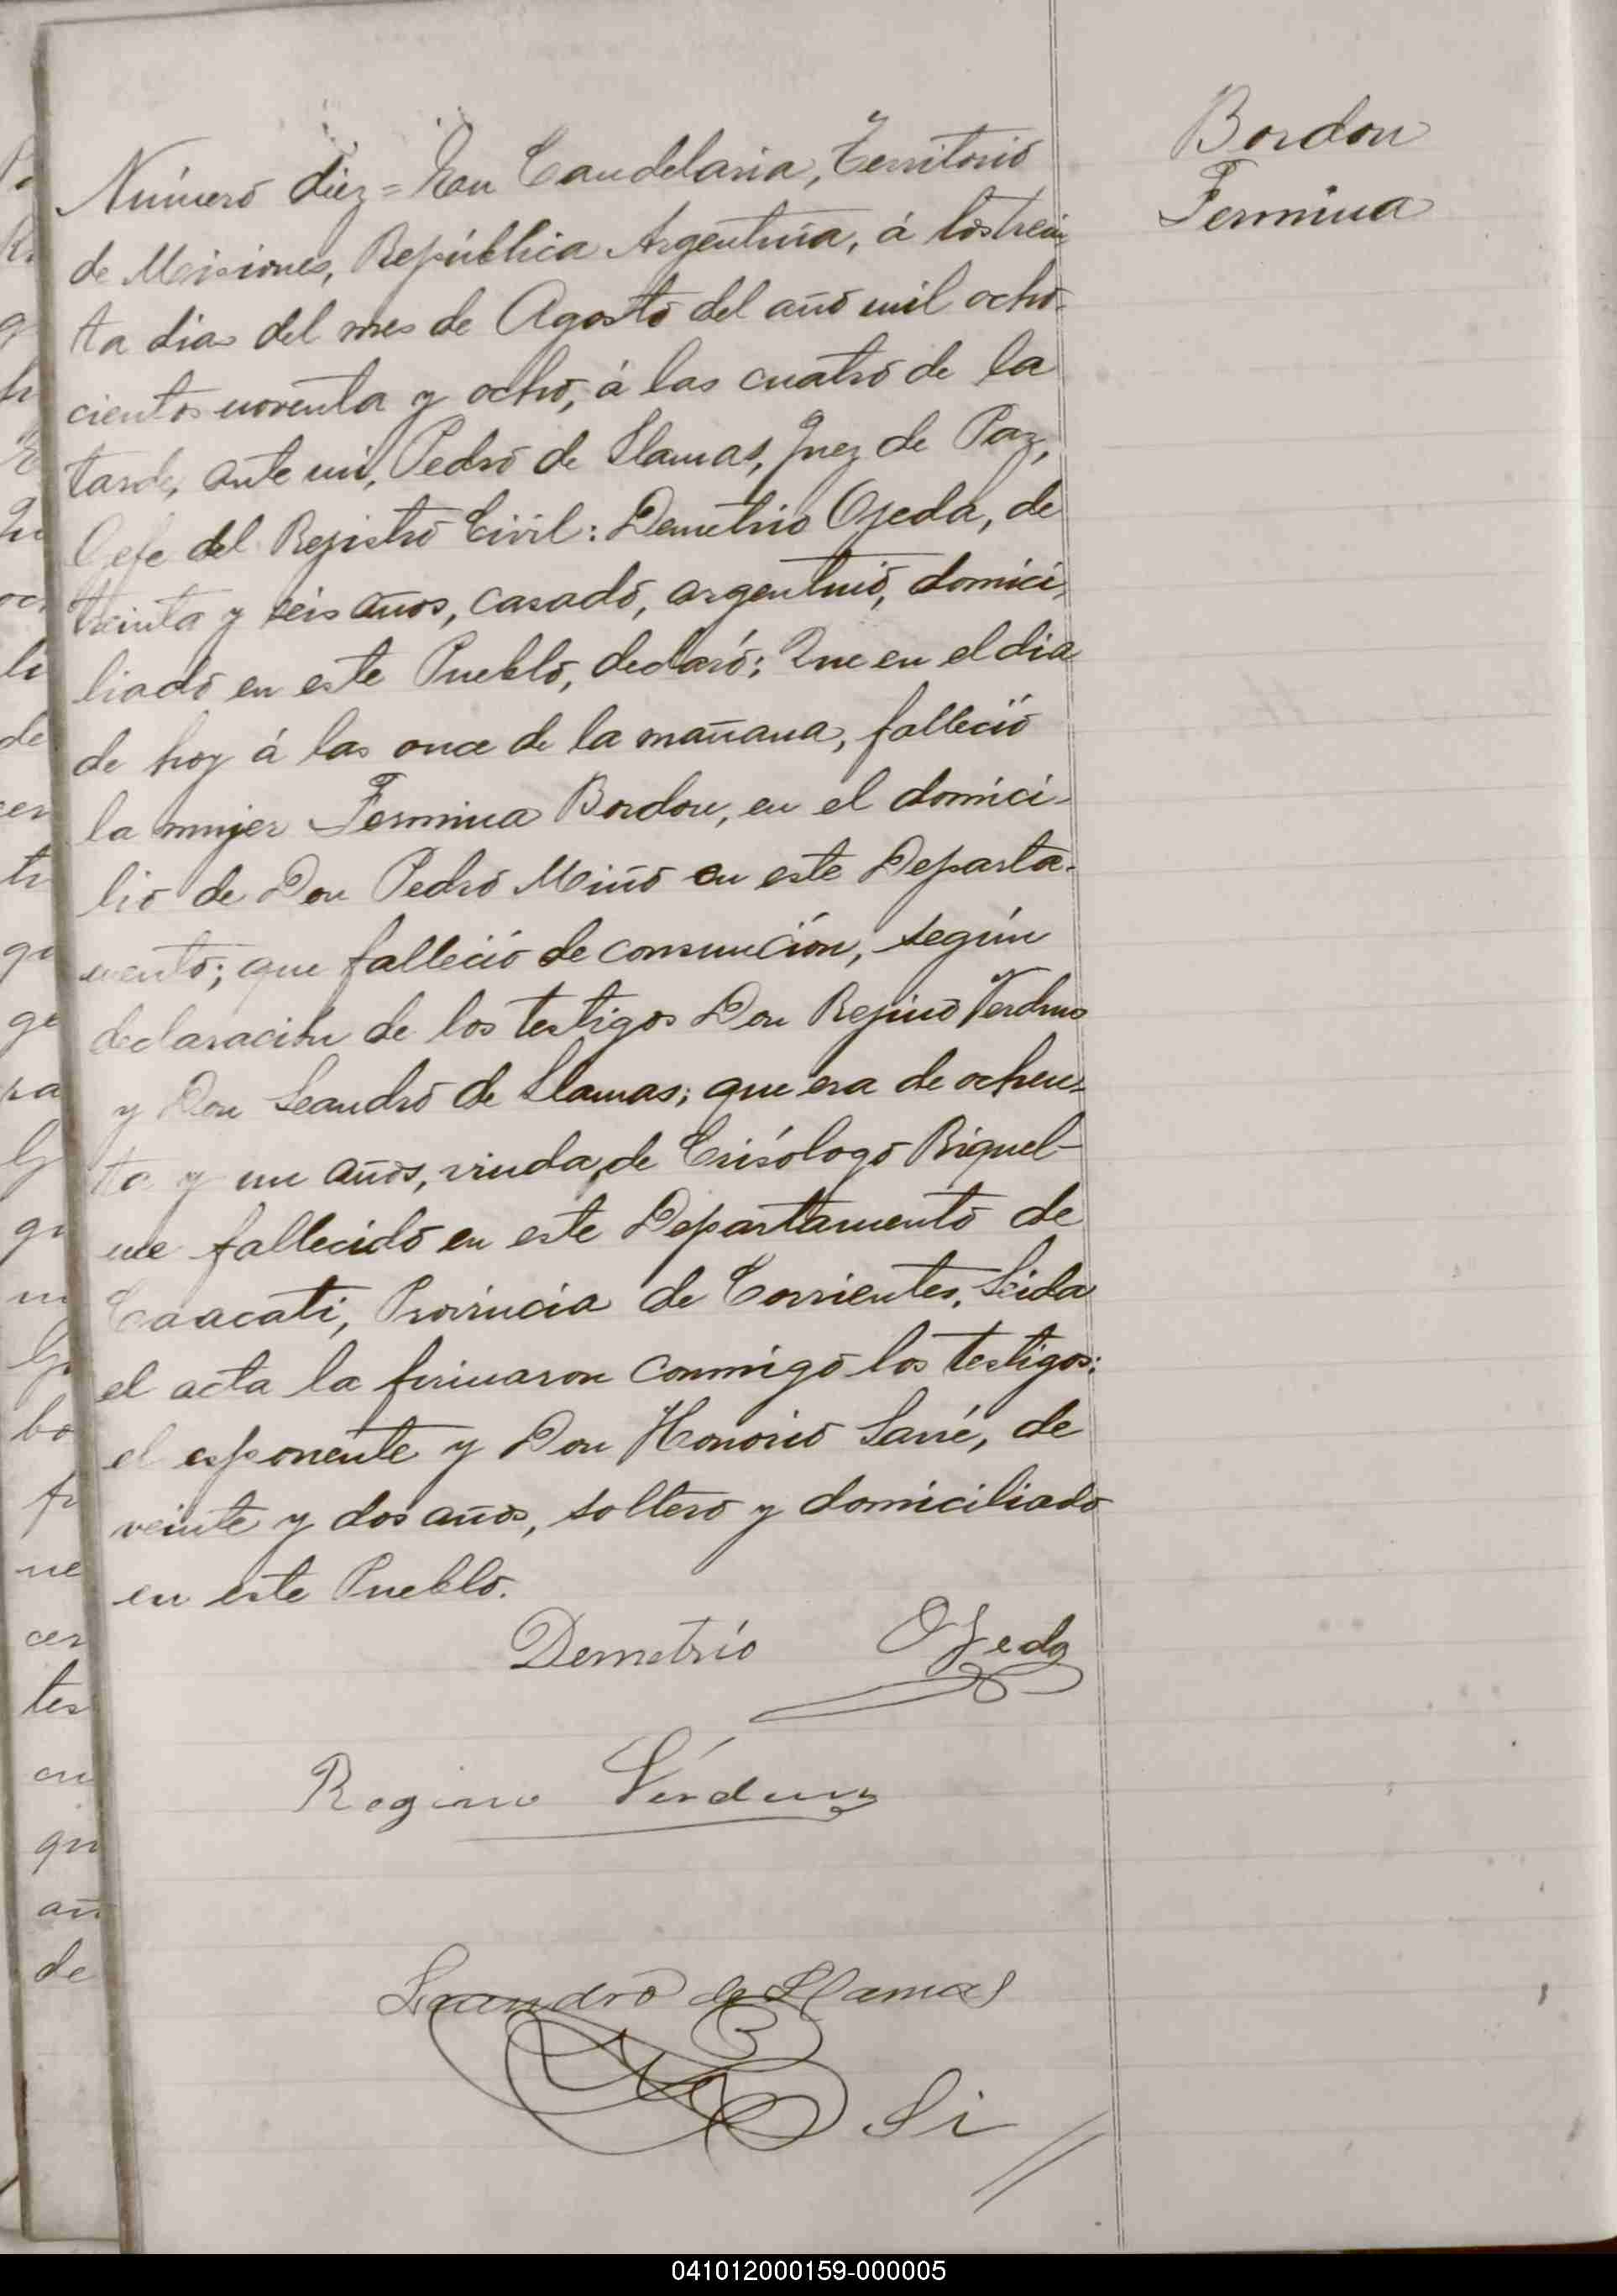 Bordon
Fermina
Número diez = En Candelaria, Territorio
de Misiones, República Argentina, á los trein
ta dias del mes de Agosto del año mil ocho-
cientos noventa y ocho, á las cuatro de la
tarde, ante mi, Pedro de Llamas, Juez de Paz,
Gefe del Registro Civil: Demetrio Ojeda, de
treinta y seis años, casado, argentino, domici-
liado en este Pueblo, declaró: Que en el dia
de hoy á las once de la mañana, falleció
la mujer Fermina Bordon, en el domici-
lio de Don Pedro Miño en este Departa-
mento; que falleció de consunción, según
declaración de los testigos Don Regino Verdun
y Don Leandro de Llamas; que era de ochen-
ta y un años, viuda, de Crisólogo Riquel-
me fallecido en este Departamento de
Caacati, Provincia de Corrientes. Leida
el acta la firmaron conmigo los testigos:
el esponente y Don Honorio Sarré, de
veinte y dos años, soltero y domiciliado
en este Pueblo.
Demetrio Ojeda
Regino Verdun
Leandro de Llamas
Si //
041012000159-000005